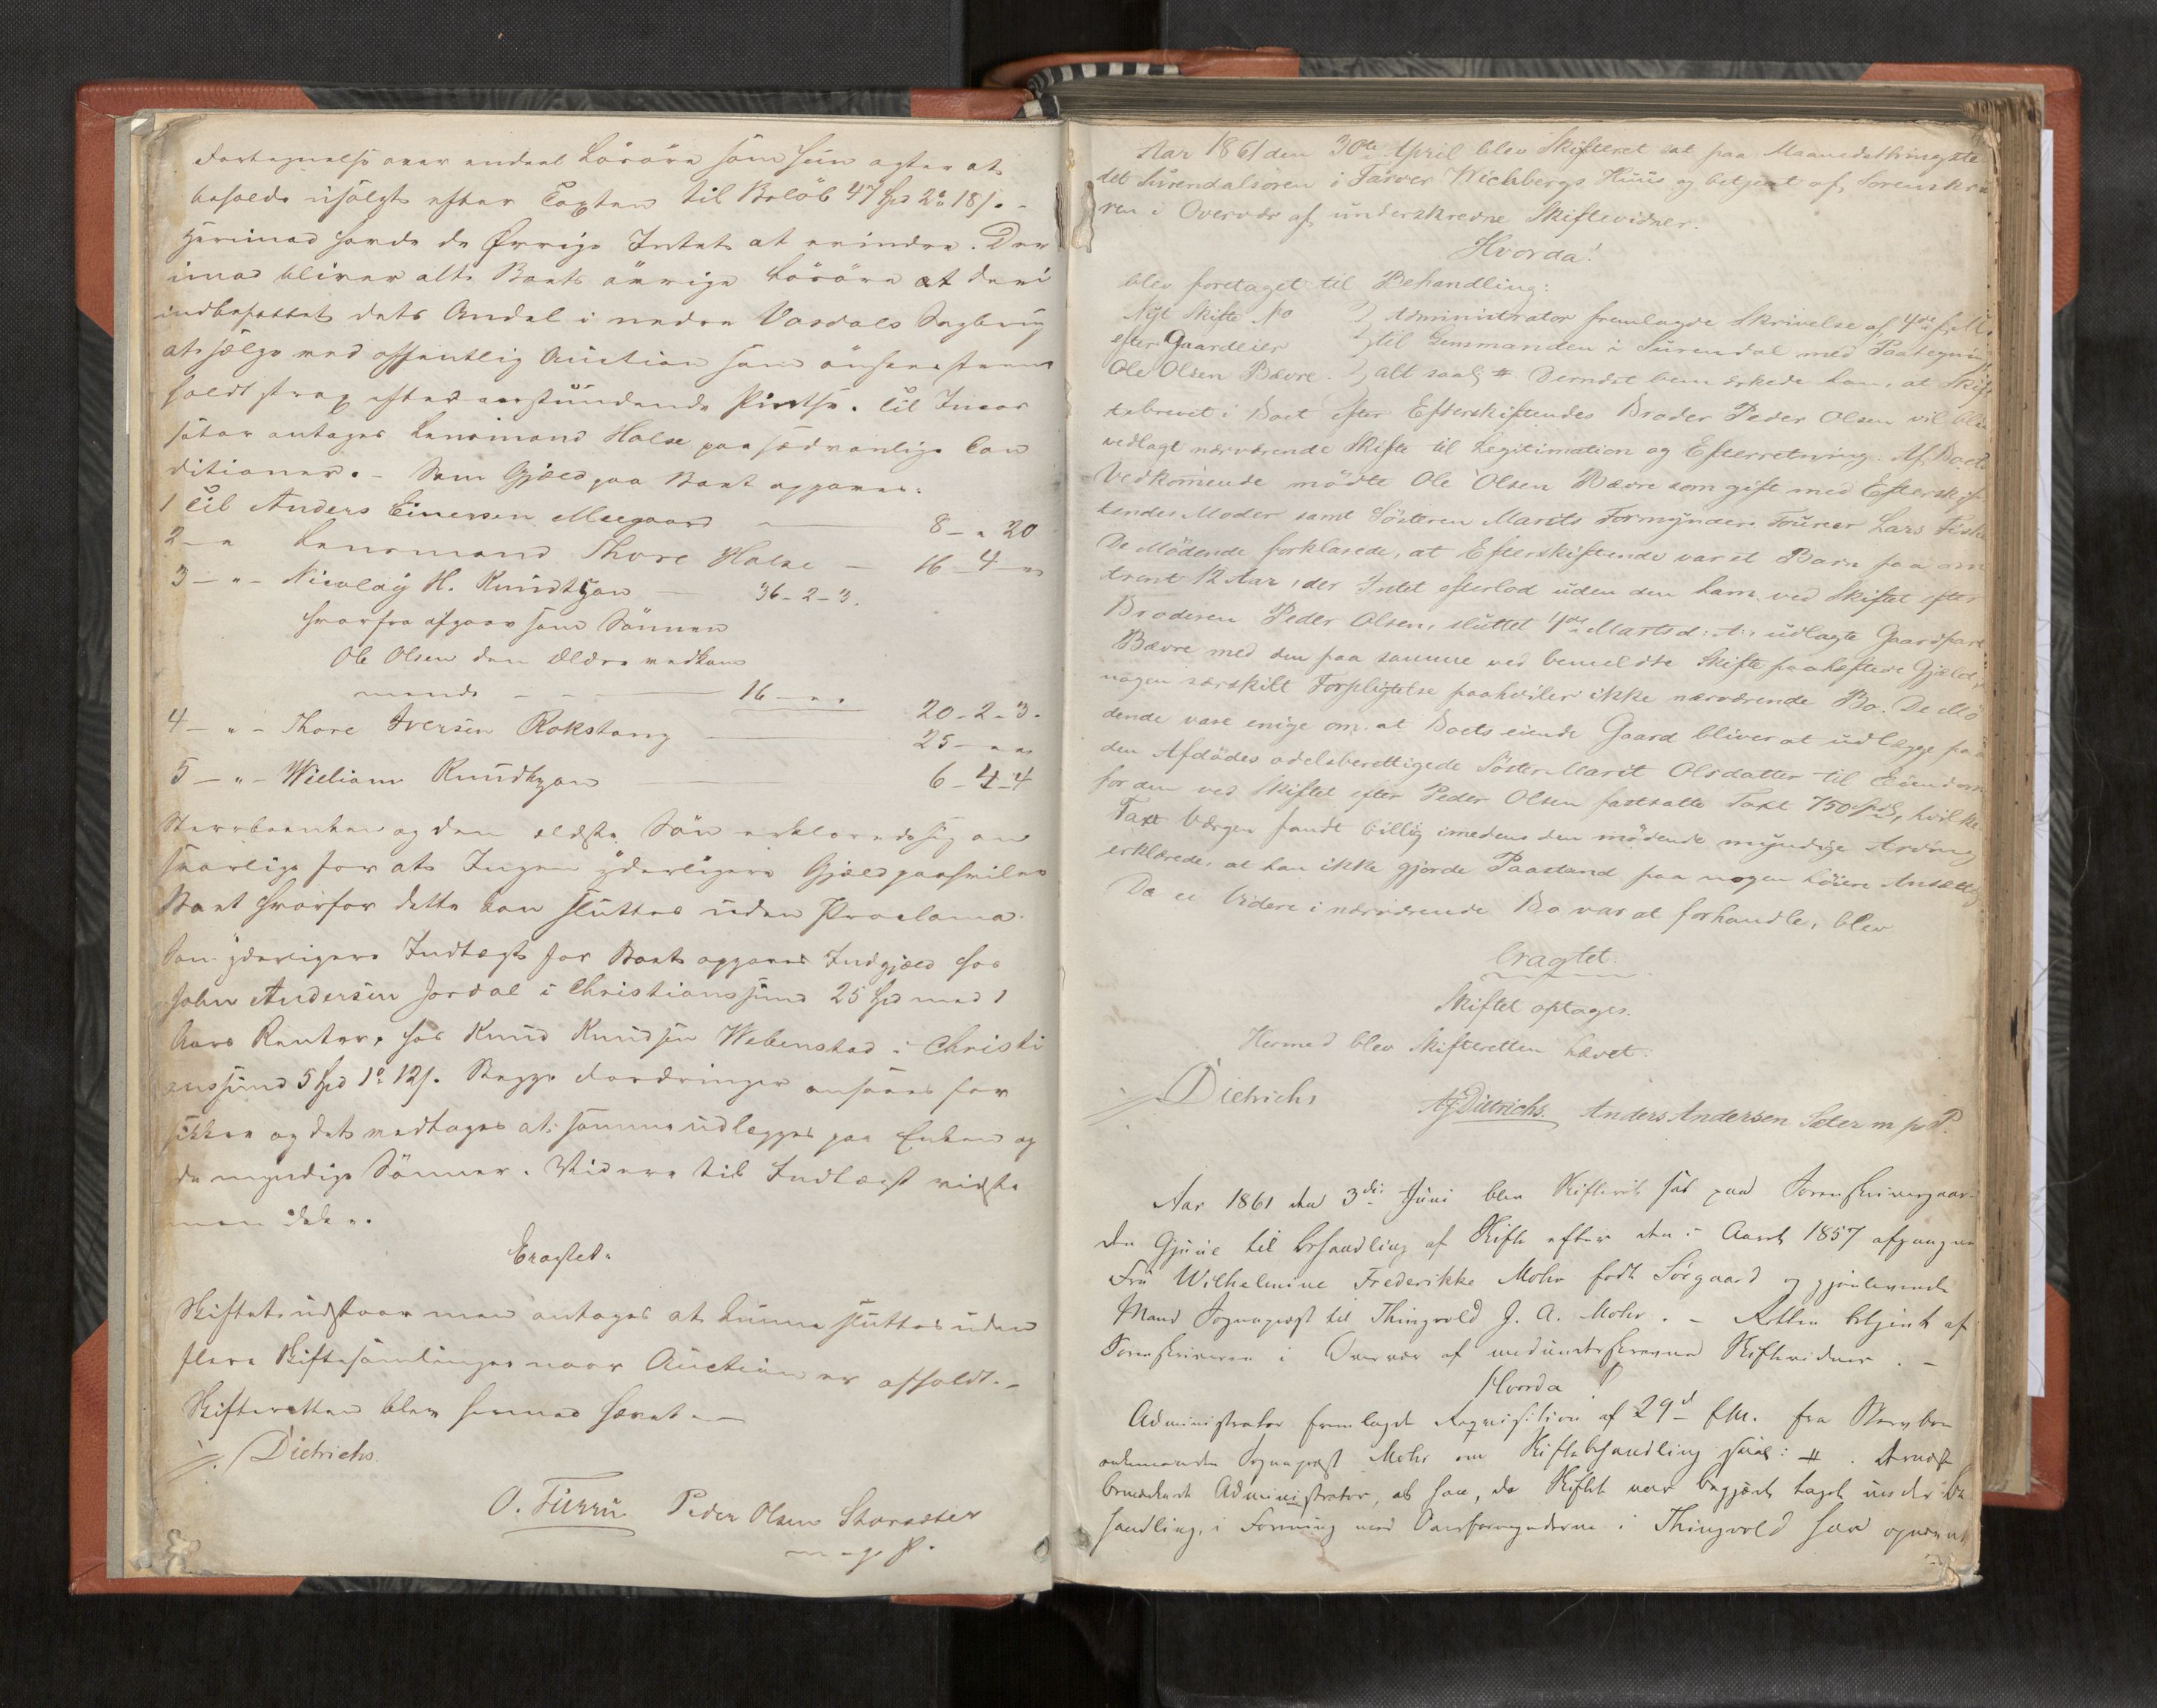 Fortegnelse over endeel Lösöre som hun agter at
beholde usolgt efter Taxten til Belöb 47 Spd 2o 18s. -
Herimod havde de Övrige Intet at erindre. Der
imod bliver alt Boets övrige Lösöre at deri
indbefattet dets Andel i nedre Vasdals Sagbrug
at sælge ved offentlig Auction som önskes
holdt strax efter tilstundende Pintse. Til Incas
sator antages Lensmand Halse paa sædvanlige Con
ditioner. - Som Gjæld paa Boet opgaves:
1 Til Anders Einersen Moegaard — 8 - " 20
2 - " Lensmand Thore Halse — 16 - 4 - "
3 - " - Nicolay H. Knudtzon — 36 - 2 - 3.
hvorfra afgaar som Sönnen
Ole Olsen den Ældre vedkom
mende — 16 - " "
20 - 2 - 3.
4 - " - Thore Iversen Rokstang — 25 - " "
5 - " - William Knudtzon — 6 - 4 - 4
Stervboenken og den ældste Sön erklærede sig an
svarlige for at Ingen yderligere Gjæld paahviler
Boet hvorfor dette kan sluttes uden Proclama.
Som yderligere Indtægt for Boet opgaves Indgjæld hos
John Andersen Jordal i Christianssund 25 Spd med 1
Aars Renter, hos Knud Knudsen Webenstad i Christi
anssund 5 Spd 1o 12s. Begge Fordringer ansaaes for
sikkre og det vedtages at samme udlægges paa Enken og
de myndige Sönner. Videre til Indtægt vidste
man ikke.
Eragtet.
Skiftet udstaar men antages at kunne sluttes uden
flere Skiftesamlinger naar Auction er afholdt. -
Skifteretten blev hermed hævet. —
Dietrichs.
O. Furru Peder Olsen Storsæter
m. p. P.
Aar 1861 den 30te April blev Skifteret sat paa Maanedsthingste
det Surendalsören i Farver Wichbergs Huus og betjent af Sorenskri
ren i Overvær af underskrevne Skiftevidner.
Hvorda!
blev foretaget til Behandling:
Nyt Skifte No } Administrator fremlagde Skrivelse af 4de f. M.
efter Gaardeier } til Lensmanden i Surendal med Paategning
Ole Olsen Bævre. } alt saal: #. Dernæst bemærkede han, at Skif
tebrevet i Boet efter Efterskiftendes Broder Peder Olsen vil blive
vedlagt nærværende Skifte til Legitimation og Efterretning. Af Boets
Vedkomende mödte Ole Olsen Bævre som gift med Efterskif
tendes Moder samt Sösteren Marits Formynder Fourer Lars Fiske
De Mödende forklarede, at Efterskiftende var et Barn paa om
trent 12 Aar, der Intet efterlod uden den ham ved Skiftet efter
Broderen Peder Olsen, sluttet 4de Marts d: A: udlagte Gaardpart
Bævre med den paa samme ved bemeldte Skifte paaheftede Gjæld,
nogen særskilt Forpligtelse paahviler ikke nærværende Bo. De Mö
dende vare enige om, at Boets eiende Gaard bliver at udlægge paa
den Afdödes odelsberettigede Söster Marit Olsdatter til Eiendom
for den ved Skiftet efter Peder Olsen fastsatte Taxt 750 Spd, hvilken
Taxt Værgen fandt billig imedens den mödende myndige Arving
erklærede, at han ikke gjorde Paastand paa nogen höiere Ansættelse
Da ei Videre i nærværende Bo var at forhandle, blev
Eragtet:
Skiftet optages.
Hermed blev Skifteretten hævet:
Dietrichs AfDittrichs. Anders Andersen Sæter m p P.
Aar 1861 den 3die Juni blev Skifteret sat paa Sorenskrivergaar
den Gjuue til Behandling af Skifte efter den i Aaret 1857 afgangne
Fru Wilhelmine Frederikke Mohr född Sörgaard og gjenlevende
Mand Sognepræst til Thingvold J. A. Mohr. - Retten betjent af
Sorenskriveren i Overvær af medunderskrevne Skiftevidner. -
Hvorda!
Administrator fremlagde Reqvisition af 29d f. M. fra Stervbo
enkemanden Sognepræst Mohr om Skiftebehandling saal: #. Dernæst
bemærkede Administrator, at han, da Skiftet var begjært taget under Be
handling, i Forening med Overformynderne i Thingvold har opnævnt